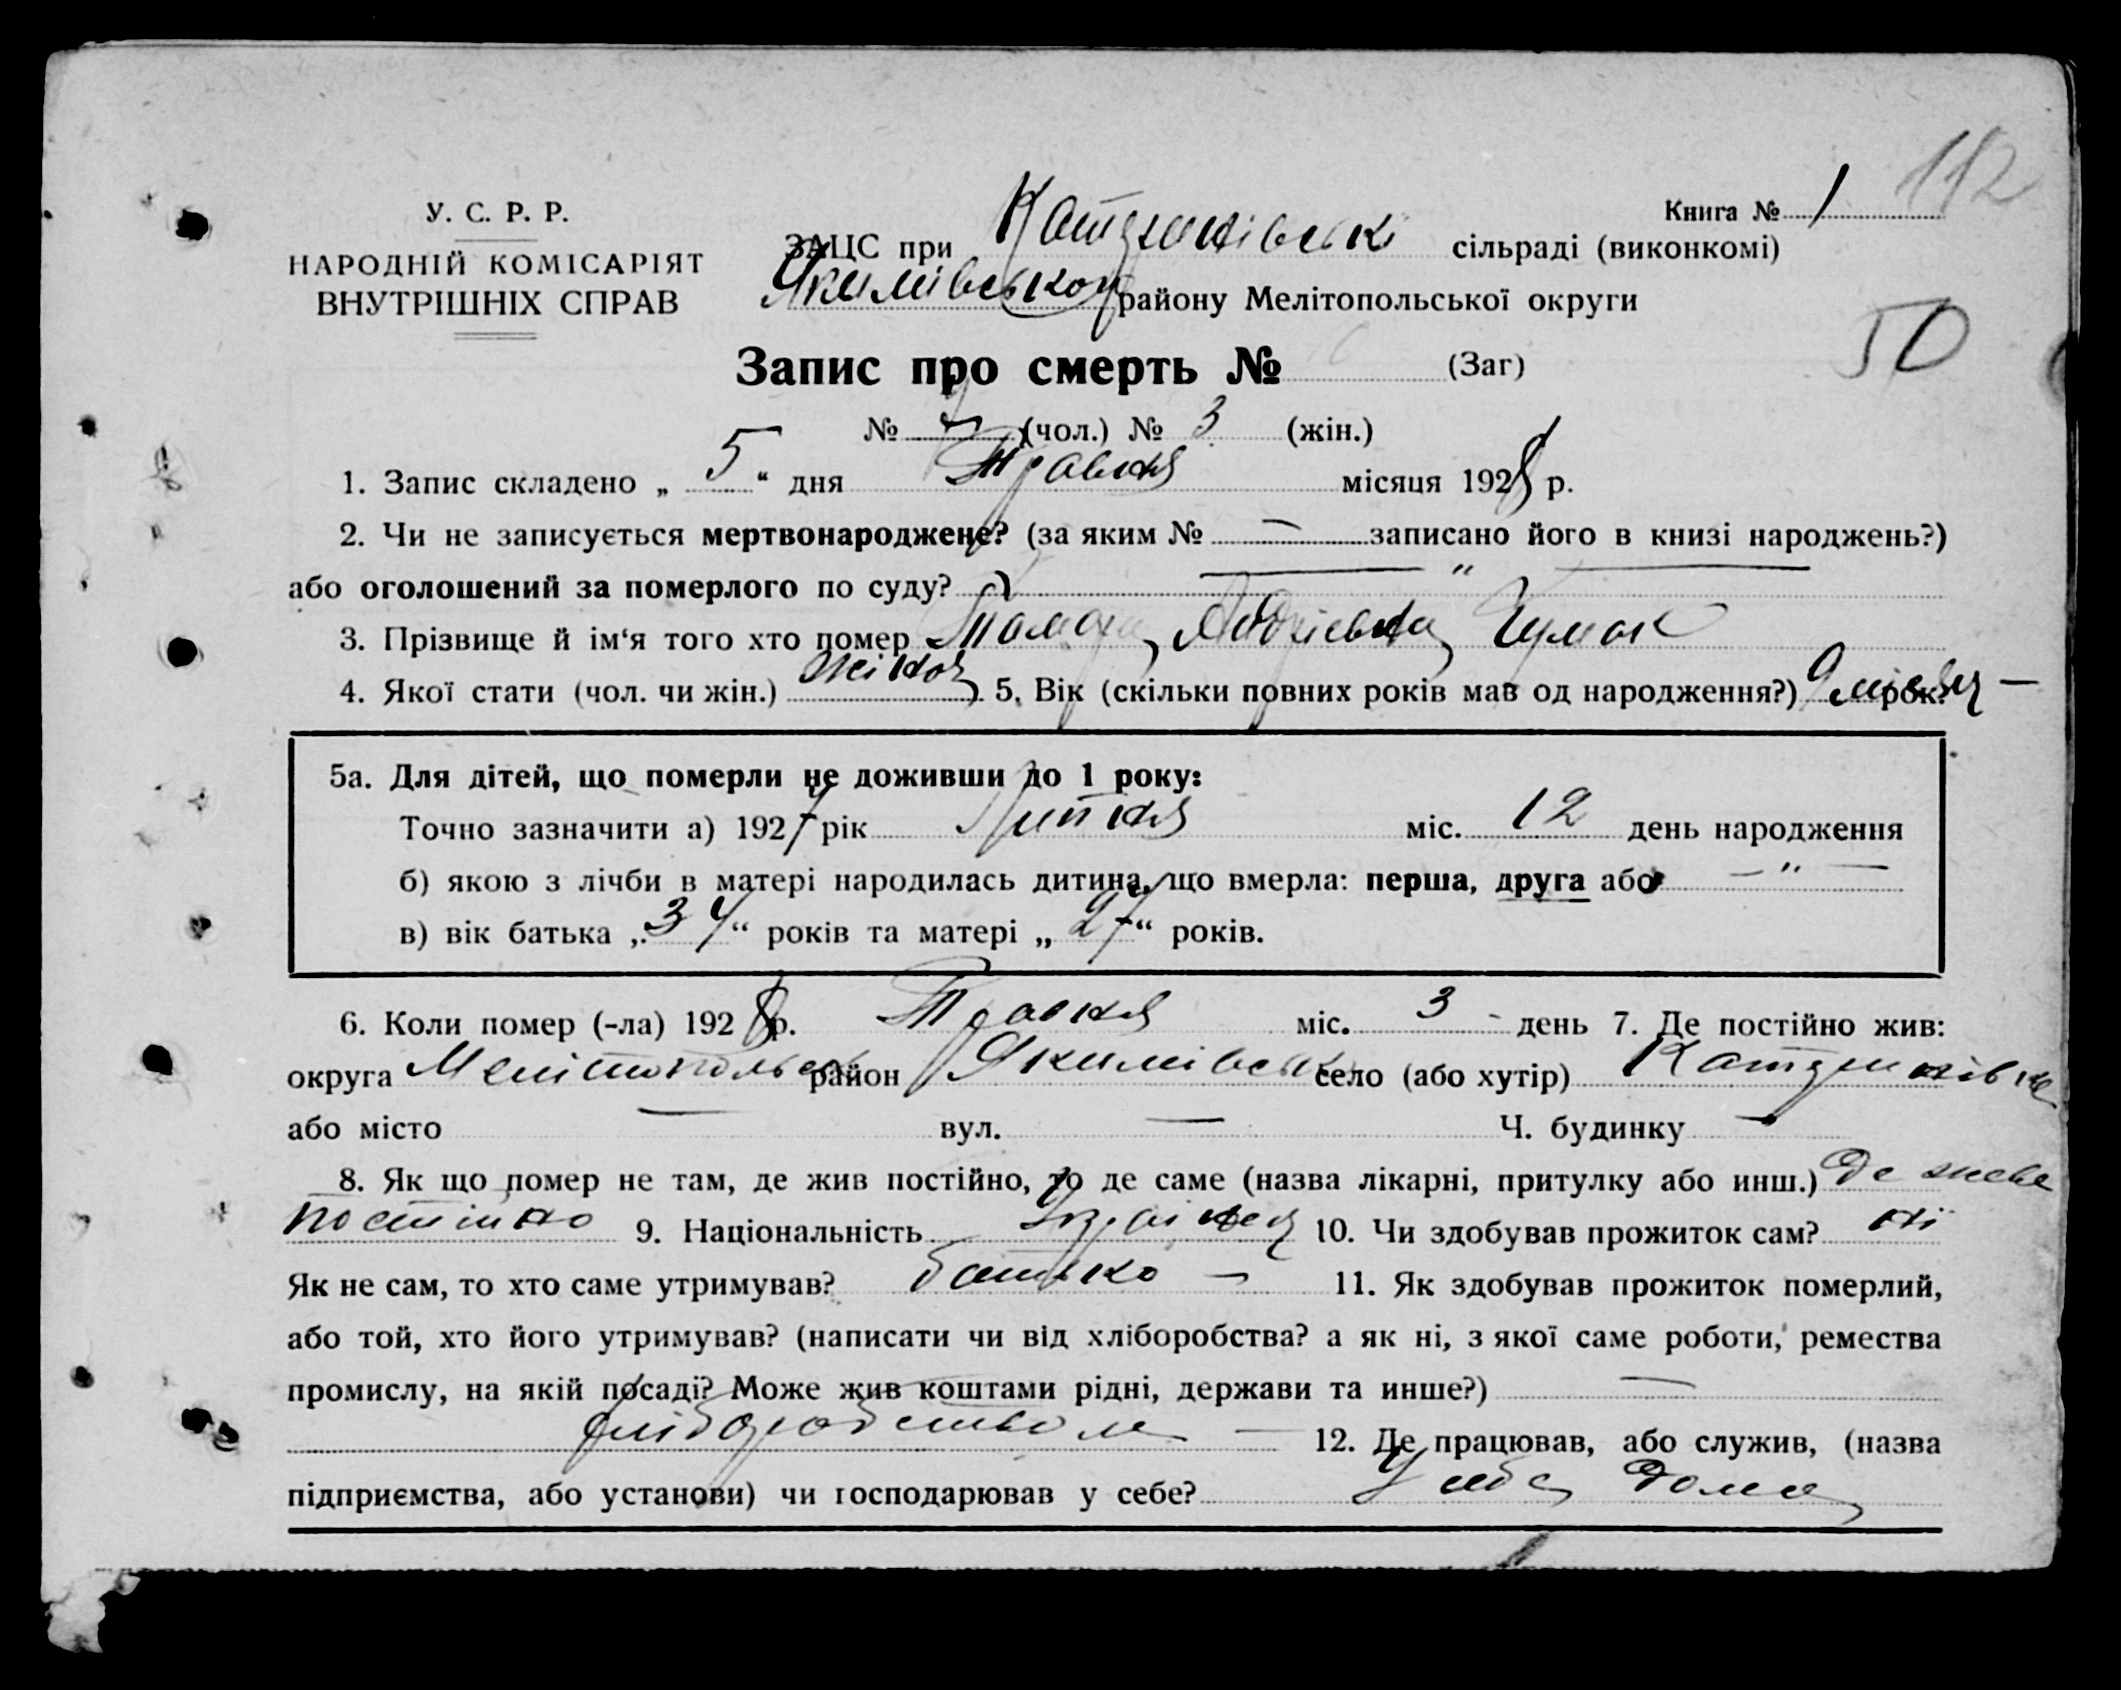 112
У. С. Р. Р.
НАРОДНІЙ КОМІСАРІЯТ
ВНУТРІШНІХ СПРАВ
Книга № 1
ЗАЦС при сільраді (виконкомі)
Якимівського району Мелітопольської округи
50
Запис про смерть № (Заг)
№ (чол.) № 3 (жін.)
1. Запис складено „ 5 “ дня Травня місяця 1928 р.
2. Чи не записується мертвонароджене? (за яким № — записано його в книзі народжень?)
або оголошений за померлого по суду? — „ —
3. Прізвище й ім‘я того хто помер Чумак
4. Якої стати (чол. чи жін.) жіноч 5. Вік (скільки повних років мав од народження?) 9 місяц — рок.
5а. Для дітей, що померли не доживши до 1 року:
Точно зазначити а) 1927 рік Липня міс. 12 день народження
б) якою з лічби в матері народилась дитина, що вмерла: перша, друга або — „ —
в) вік батька „ 34 “ років та матері „ 27 “ років.
6. Коли помер (-ла) 1928 р. Травня міс. 3 - день 7. Де постійно жив:
округа Мелітопольськ район Якимівськ село (або хутір)
або місто — вул. — Ч. будинку —
8. Як що помер не там, де жив постійно, то де саме (назва лікарні, притулку або инш.) де живе
постійно 9. Національність 10. Чи здобував прожиток сам? ні
Як не сам, то хто саме утримував? батько — 11. Як здобував прожиток померлий,
або той, хто його утримував? (написати чи від хліборобства? а як ні, з якої саме роботи, ремества
промислу, на якій посаді? Може жив коштами рідні, держави та инше?) —
хліборобством — 12. Де працював, або служив, (назва
підприємства, або установи) чи господарював у себе? У себе дома